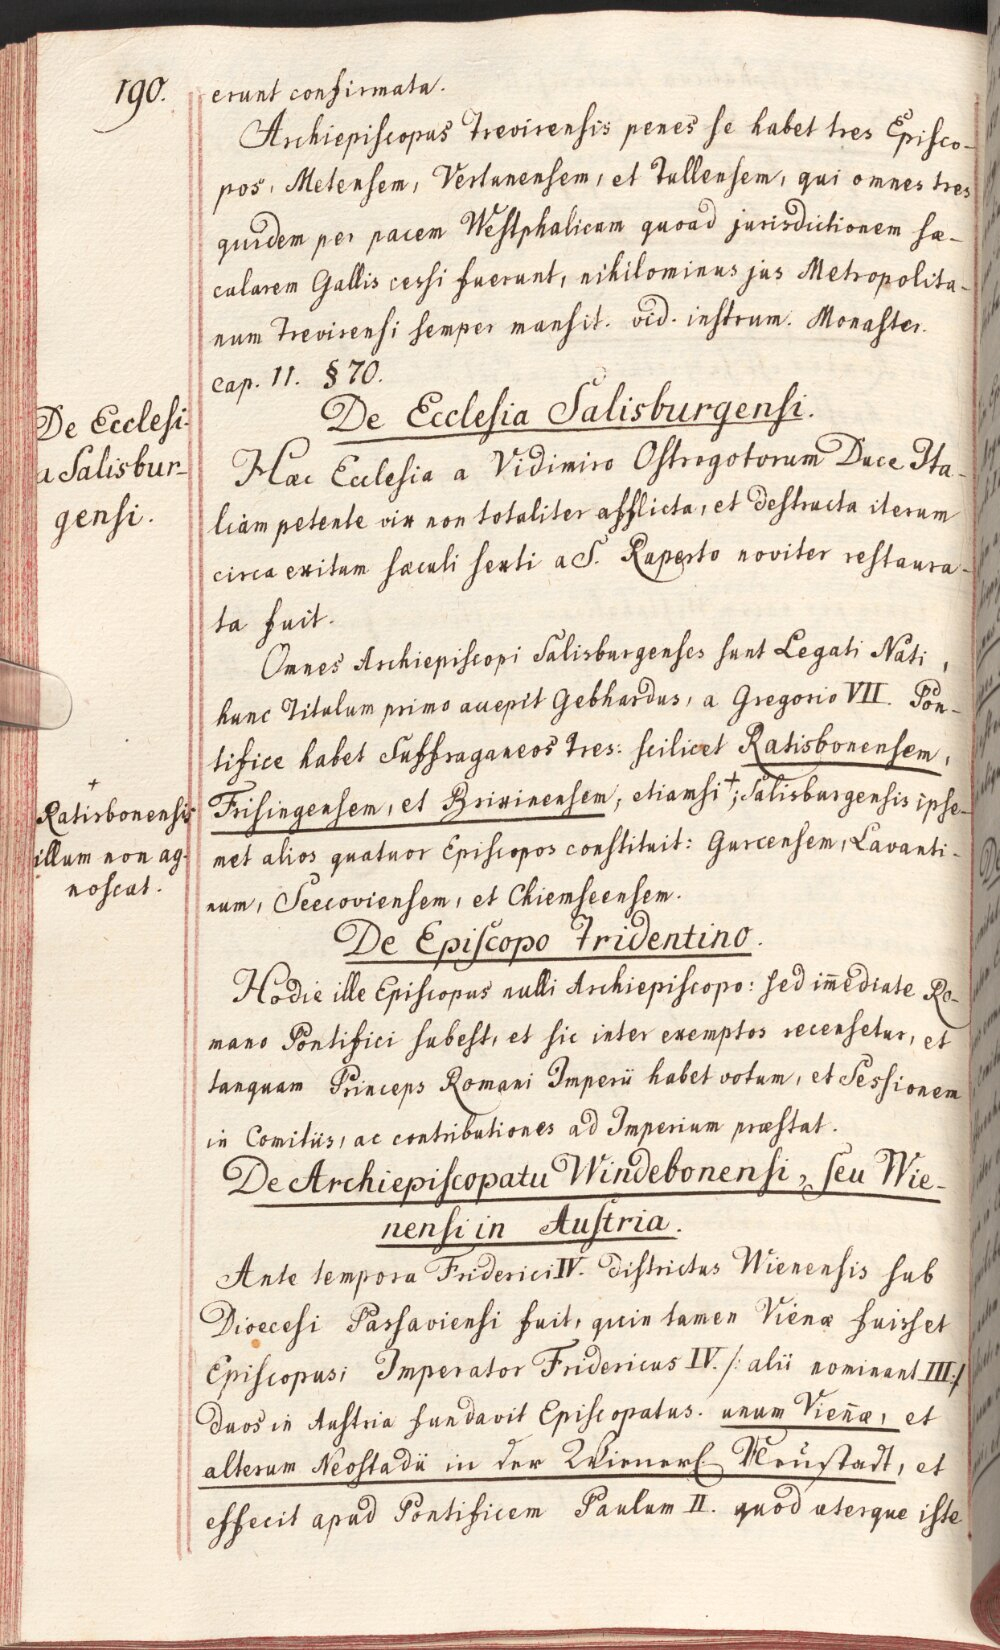 190.
erunt confirmata.
Archiepiscopus Trevirensis penes se habet tres Episco-
pos, Metensem, Verdunensem, et Tullensem, qui omnes tres
quidem per pacem Westphalicam quoad jurisdictionem sæ-
cularem Gallis cessi fuerunt, nihilominus jus Metropolita-
num Trevirensi semper mansit. vid. instrum. Monaster.
cap. 11. § 70.
De Ecclesia Salisburgensi.
De Ecclesi-
a Salisbur-
gensi.
Hæc Ecclesia a Vidimiro Ostrogotorum Duce Ita-
liam petente vix non totaliter afflicta, et destructa iterum
circa exitum sæculi sexti a S. Ruperto noviter restaura-
ta fuit.
Omnes Archiepiscopi Salisburgenses sunt Legati Nati,
hunc Titulum primo accepit Gebhardus, a Gregorio VII. Pon-
tifice habet Suffraganeos tres: scilicet Ratisbonensem,
Frisingensem, et Brixinensem, etiamsi +; Salisburgensis ipse-
met alios quatuor Episcopos constituit: Gurcensem, Lavanti-
num, Seecoviensem, et Chiemseensem.
+
Ratisbonensis
illum non ag-
noscat.
De Episcopo Tridentino.
Hodie ille Episcopus nulli Archiepiscopo: sed im̄ediate Ro-
mano Pontifici subest, et sic inter exemptos recensetur, et
tanquam Princeps Romani Imperii habet votum, et Sessionem
in Comitiis, ac contributiones ad Imperium præstat.
De Archiepiscopatu Windebonensi, seu Wie-
nensi in Austria.
Ante tempora Friderici IV. districtus Wienensis sub
Dioecesi Passaviensi fuit, quin tamen Vienæ fuisset
Episcopus; Imperator Fridericus IV. /: alii nominant III :/
duos in Austria fundavit Episcopatus. unum Vien̄æ, et
alterum Neostadii in der Wienerl Neüstadt, et
effecit apud Pontificem Paulum II. quod uterque iste